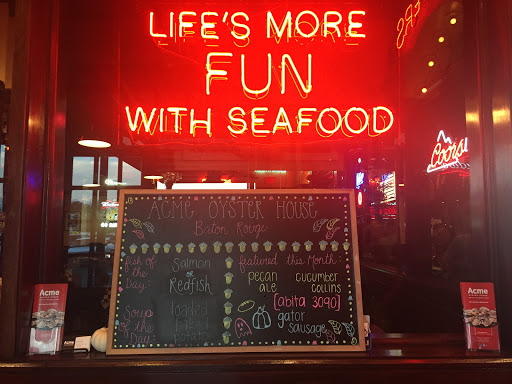 LIFE'S MORE
FUN
WITH SEAFOOD
Coors
ACME OYSTER HOUSE
Baton Rouge
Fish of the Day:
Salmon
or
Redfish
Soup of the Day:
loaded
baked
potato
featured this Month:
pecan ale
cucumber collins
[abita 3090]
gator sausage
Acme
Acme